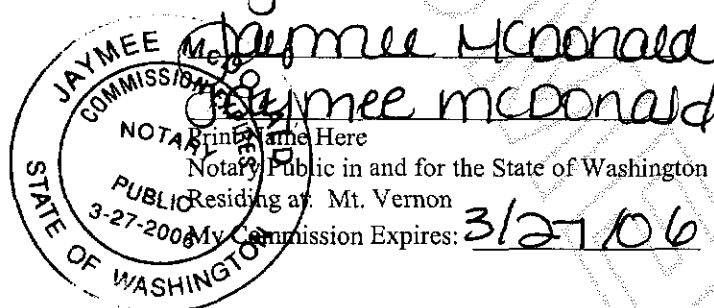 Jaymee McDonald
Jaymee McDonald
Print Name Here
Notary Public in and for the State of Washington
Residing at: Mt. Vernon
My Commission Expires: 3/27/06
JAYMEE McDONALD
STATE OF WASHINGTON
COMMISSION EXPIRES
NOTARY
PUBLIC
3-27-2006